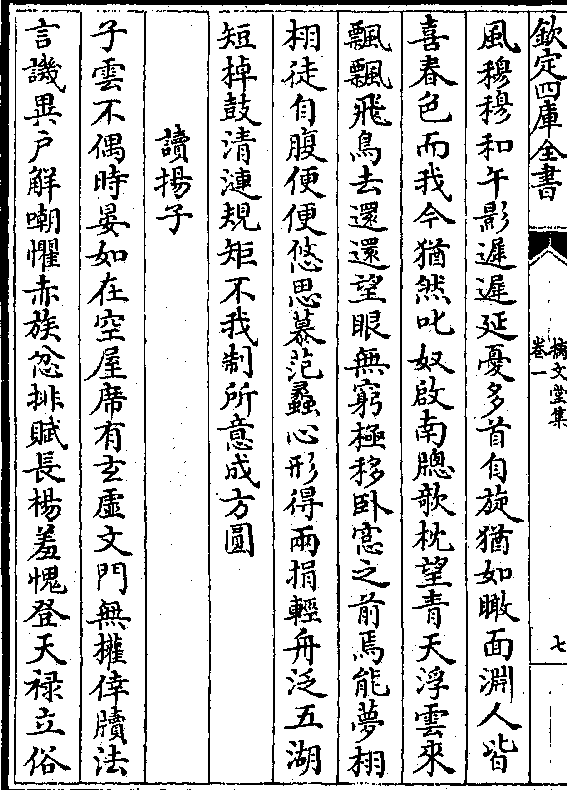 欽定四庫全書
摛文堂集
卷一
七
風穆穆和午影遲遲延憂多首自旋猶如瞰面淵人皆
喜春色而我今猶然叱奴啟南牕欹枕望青天浮雲來
飄飄飛鳥去還還望眼無窮極移臥窓之前焉能夢栩
栩徒自腹便便悠思慕范蠡心形得兩捐輕舟泛五湖
短棹鼓清漣規矩不我制所意成方圓
讀揚子
子雲不偶時晏如在空屋席有玄虛文門無權倖牘法
言譏異户解嘲懼赤族忿排賦長楊羞愧登天禄立俗